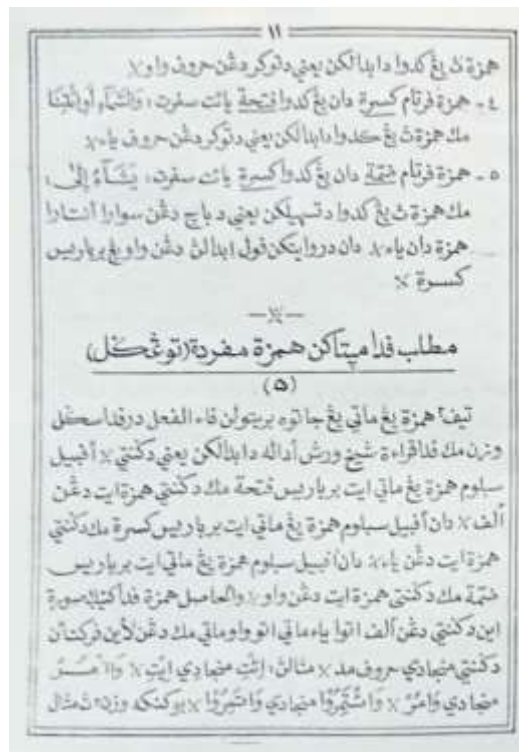 ١١
همزة ڽ يڠ كدوا دابدالكن يعني دتوكر دڠن حروف واو ٪
٤ - همزة فرتام كسرة دان يڠ كدوا فتحة يائت سفرت، وَالسَّمَآءِ أَوِائْتِنَا
مك همزة ڽ يڠ كدوا دابدالكن يعني دتوكر دڠن حروف ياء ٪
٥ - همزة فرتام ضمّة دان يڠ كدوا كسرة يائت سفرت، يَشَآءُ إِلَىٰ،
مك همزة ڽ يڠ كدوا دتسهيلكن يعني دباچ دڠن سوارا أنتارا
همزة دان ياء ٪ دان دروايتكن قول إبدالڽ دڠن واو يڠ برباريس
كسرة ٪
مطلب فدا مپتاكن همزة مفردة (توڠݢل)
(٥)
تيف٢ همزة يڠ ماتي يڠ جاتوه بربتولن فاء الفعل درفدا سݢل
وزن مك فدا قراءة شيخ ورش أداله دابدالكن يعني دݢنتي ٪ أفبيل
سبلوم همزة يڠ ماتي ايت برباريس فتحة مك دݢنتي همزة ايت دڠن
ألف ٪ دان أفبيل سبلوم همزة يڠ ماتي ايت برباريس كسرة مك دݢنتي
همزة ايت دڠن ياء ٪ دان أفبيل سبلوم همزة يڠ ماتي ايت برباريس
ضمّة مك دݢنتي همزة ايت دڠن واو ٪ والحاصل همزة فدا كتيݢ٢ صورة
اين دݢنتي دڠن ألف اتوا ياء ماتي اتو واو ماتي مك دڠن لأين فركتأن
دݢنتي منجادي حروف مد ٪ مثالڽ، إئْتِ منجادي ايْتِ ٪ وَأْمُرْ
منجادي وَامُرْ ٪ وَائْتَمِرُوْا منجادي وَاتَمِرُوْا ٪ بوكنكه وزن٢ ڽ مثال